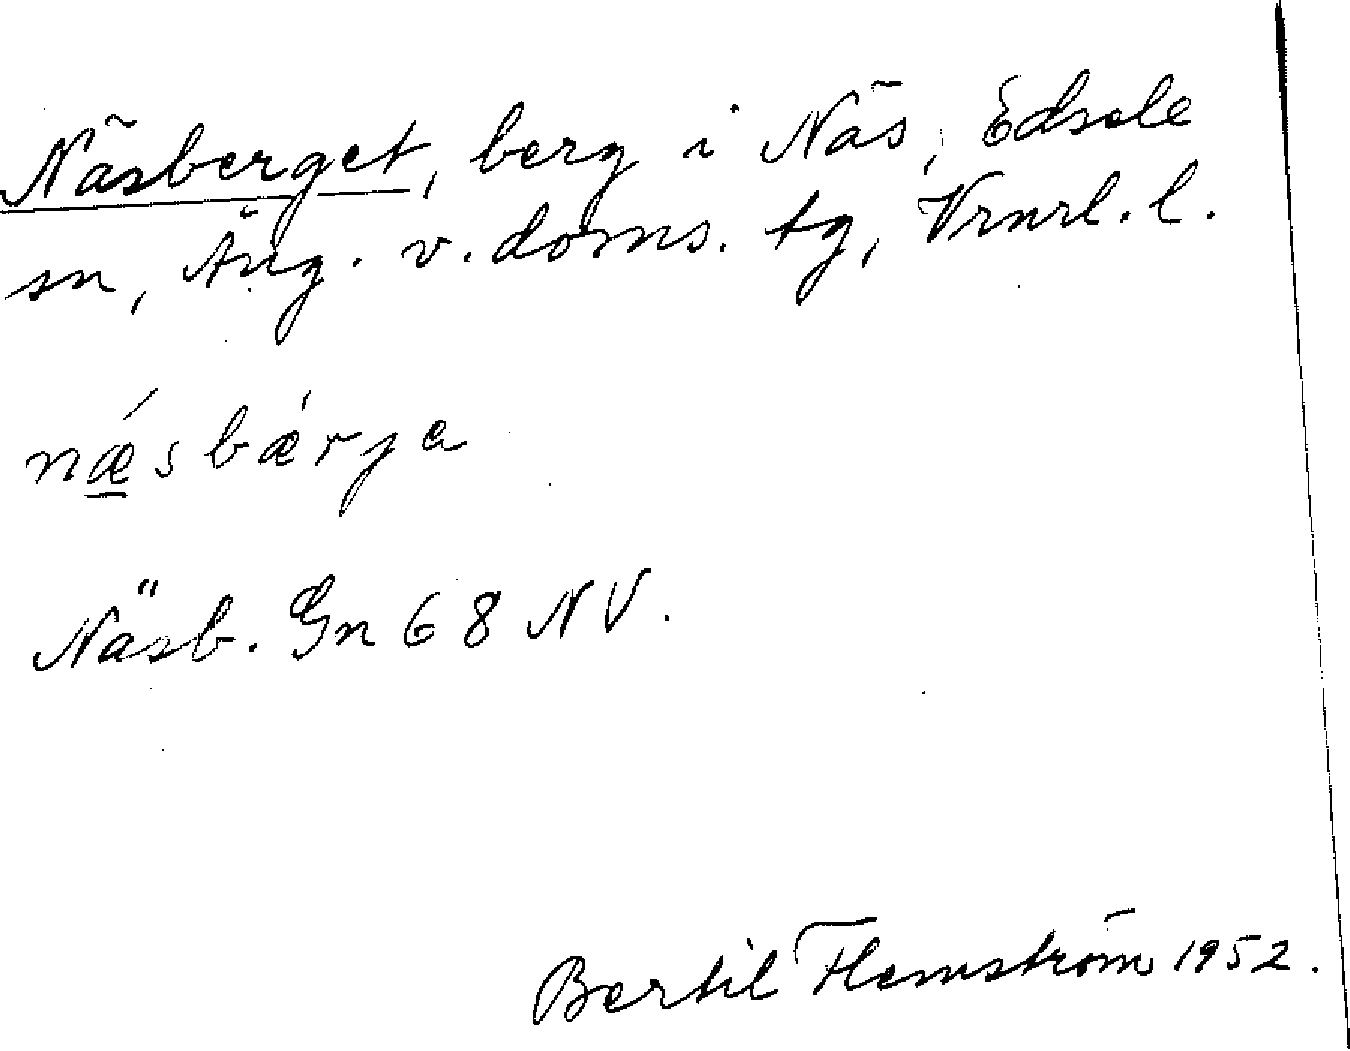 Näsberget, berg i Näs, Edsele
sn, Ång. v. doms. tg, Vrnrl. l.
nǽ̲sbǽrja
Näsb. Gn 68 NV.
Bertil Flemström 1952.